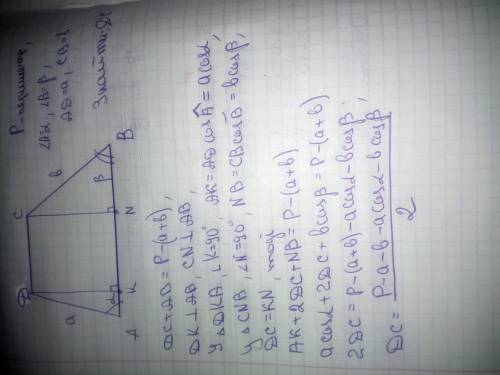 P-периметр,
∠A=α, ∠B=β,
AD=a, CB=b
Знайти: DC
D
C
a
b
α
β
A
K
N
B
DC+AB = P-(a+b),
DK⊥AB, CN⊥AB,
У ΔDKA, ∠K=90°, AK=AD cosA = a cosα,
У ΔCNB, ∠N=90°, NB=CB cosB = b cosβ,
DC=KN, тоді
AK+2DC+NB = P-(a+b)
a cosα+2DC+b cosβ = P-(a+b)
2DC = P-(a+b)-a cosα-b cosβ;
DC = P-a-b-a cosα-b cosβ
2